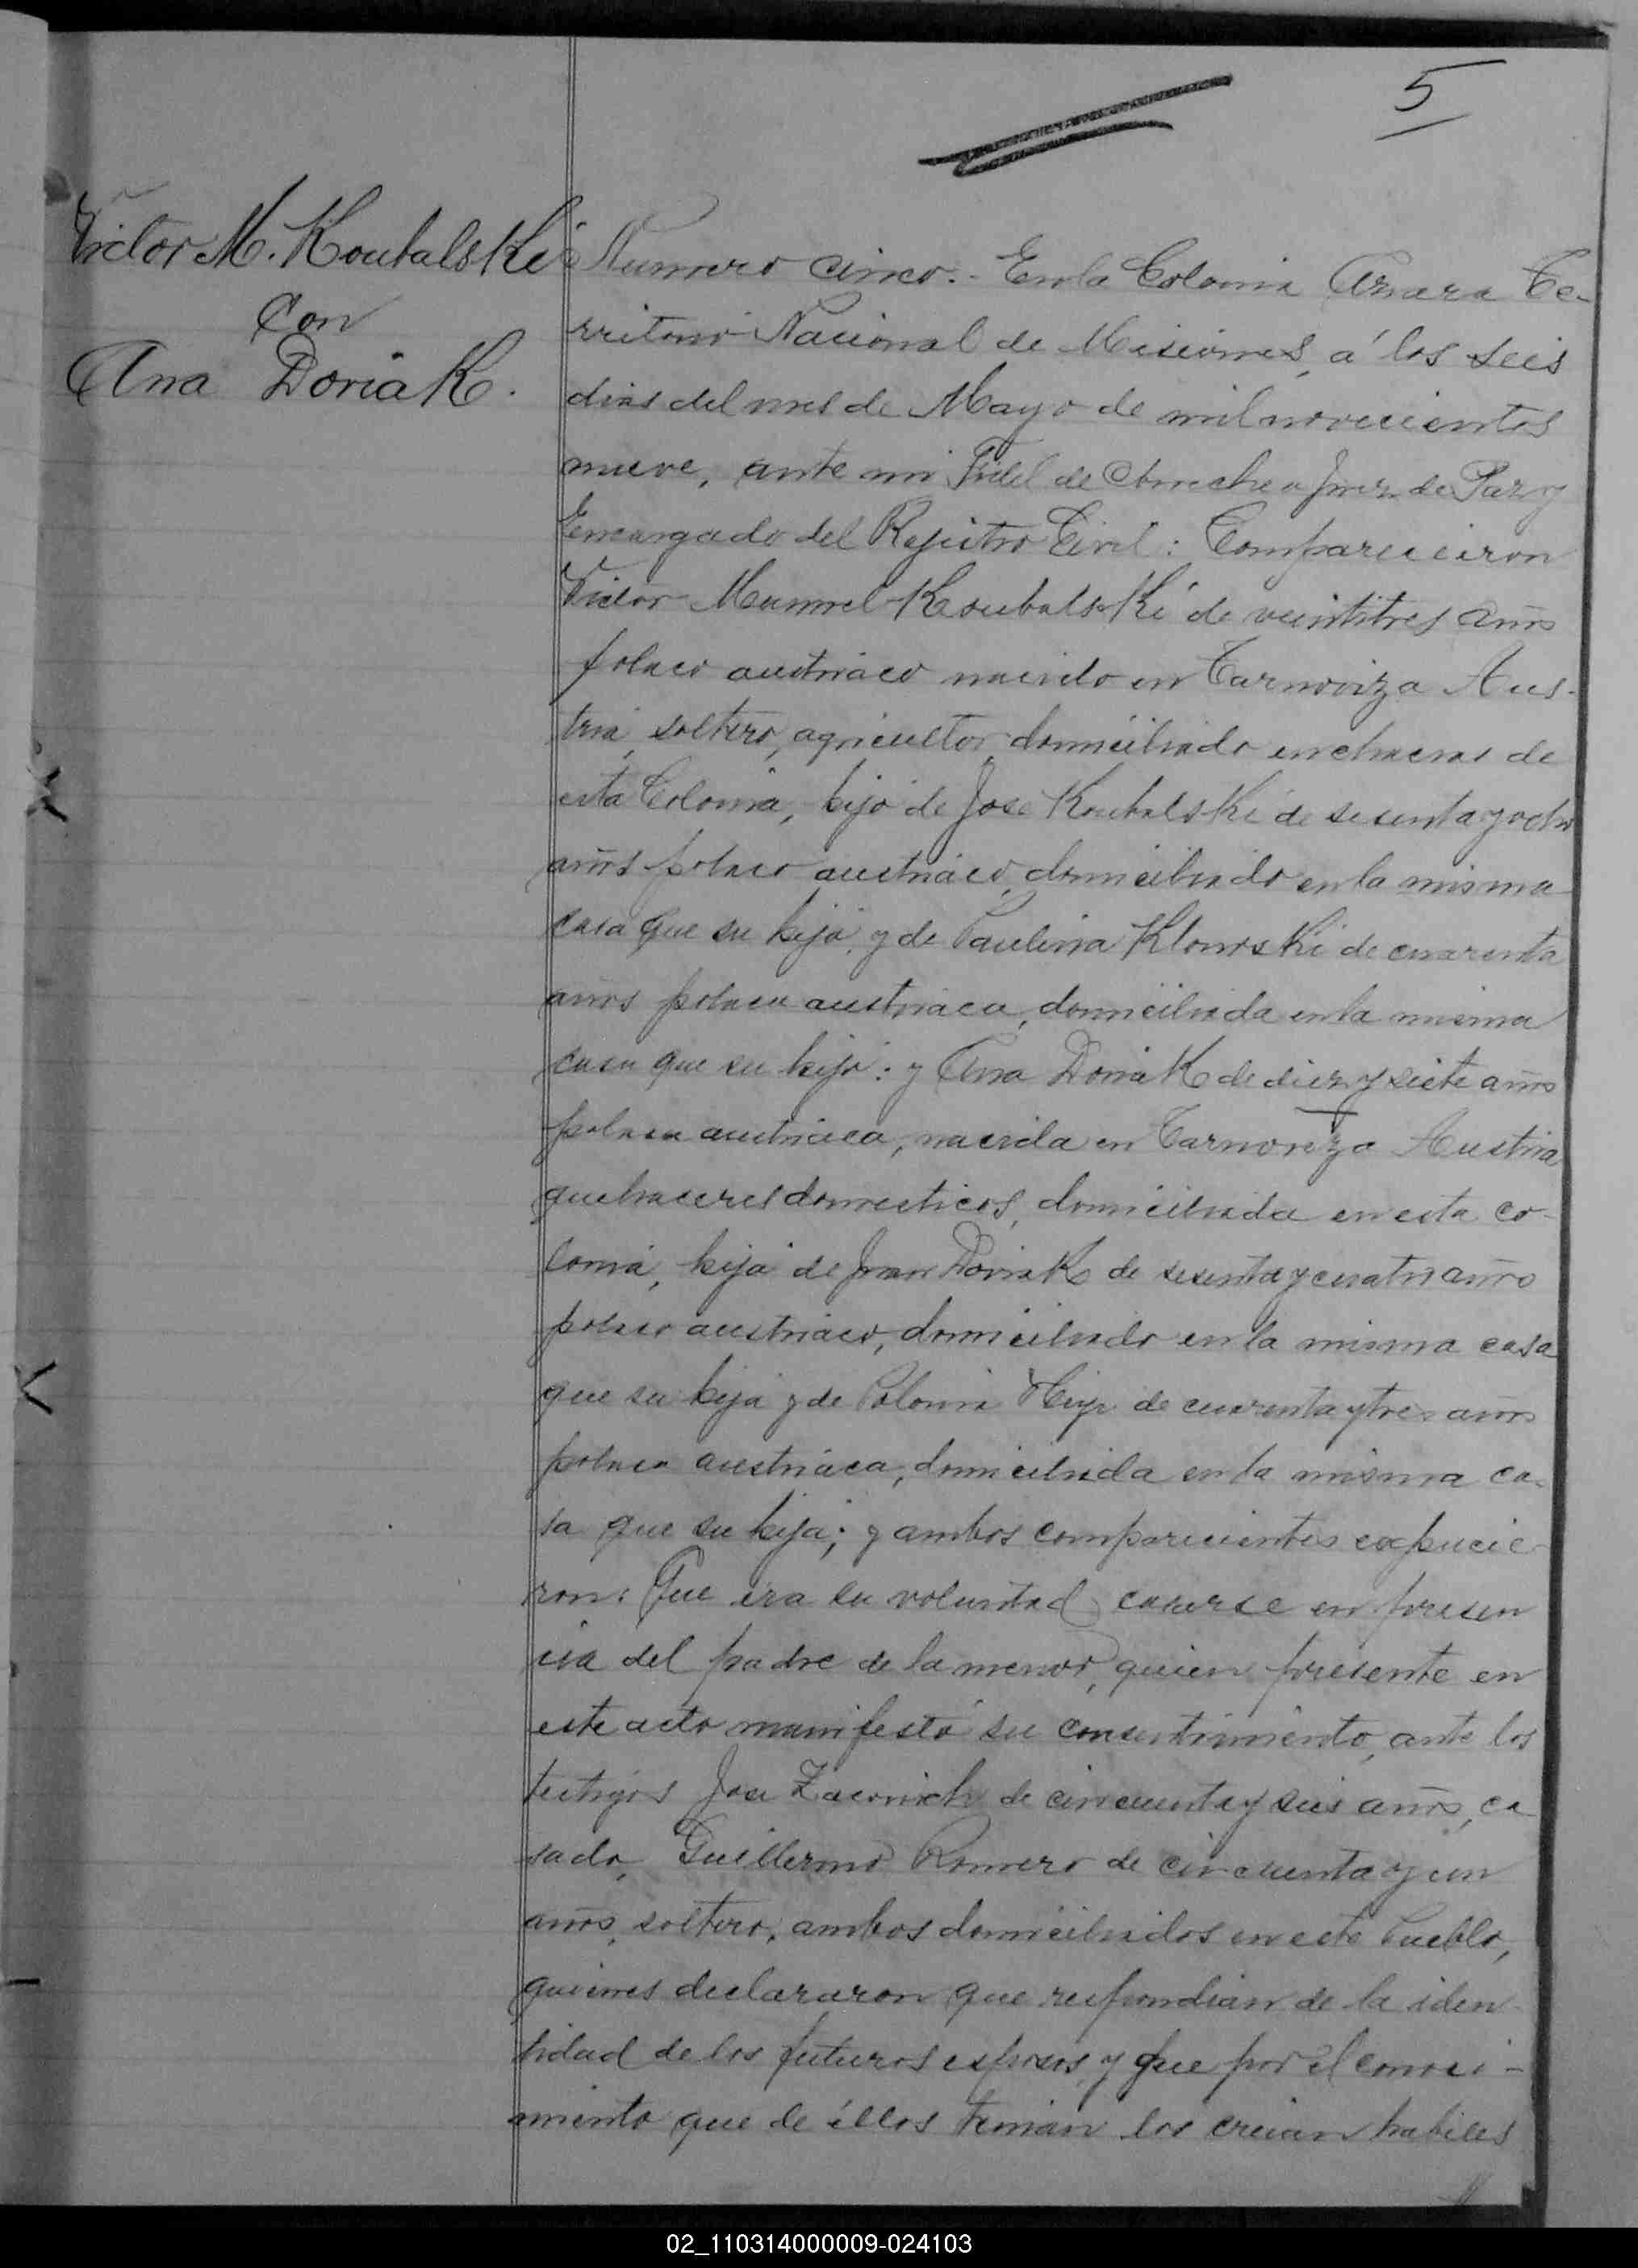 5
Victor M. Koubalski
con
Ana Doriak.
Numero cinco.- En la Colonia Azara Te-
rritorio Nacional de Misiones, á los seis
dias del mes de Mayo de mil novecientos
nueve, ante mi Fidel de Juez de Paz y
Encargado del Rejistro Civil: Comparecieron
Victor Manuel Koubalski de veintitres años
polaco austriaco nacido en Tarnoviza Aus-
tria, soltero, agricultor, domiciliado en chacras de
esta Colonia, hijo de Jose Koubalski de sesenta y ocho
años polaco austriaco, domiciliado en la misma
casa que su hijo y de Paulina Klowski de cuarenta
años polaca austriaca, domiciliada en la misma
casa que su hijo: y Ana Doriak de diez y siete años
polaca austriaca, nacida en Tarnoviza Austria
quehaceres domesticos, domiciliada en esta co-
lonia, hija de Juan Doriak de sesenta y cuatro años
polaco austriaco, domiciliado en la misma casa
que su hija y de de cuarenta y tres años
polaca austriaca, domiciliada en la misma ca-
sa que su hija; y ambos comparecientes expucie-
ron: Que era su voluntad casarse en presen
cia del padre de la menor, quien presente en
este acto manifestó su consentimiento, ante los
testigos Jose de cincuenta y seis años, ca
sado, Guillermo Romero de cincuenta y un
años, soltero, ambos domiciliados en este Pueblo,
quienes declararon que respondian de la iden-
tidad de los futuros esposos y que por el conoci-
miento que de éllos tenian los creian habiles
02_110314000009-024103